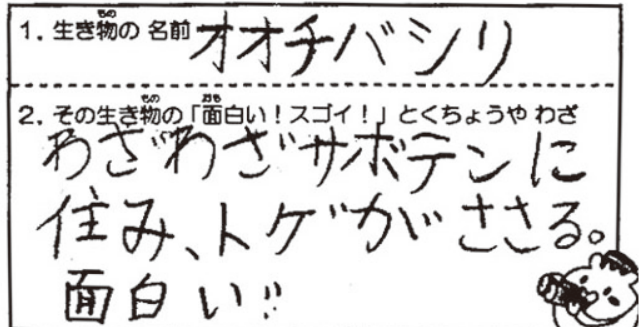 1. 生き物の 名前 オオチバシリ
2. その生き物の「面白い!スゴイ!」とくちょうや わざ
わざわざサボテンに
住み、トゲがささる。
面白い!!